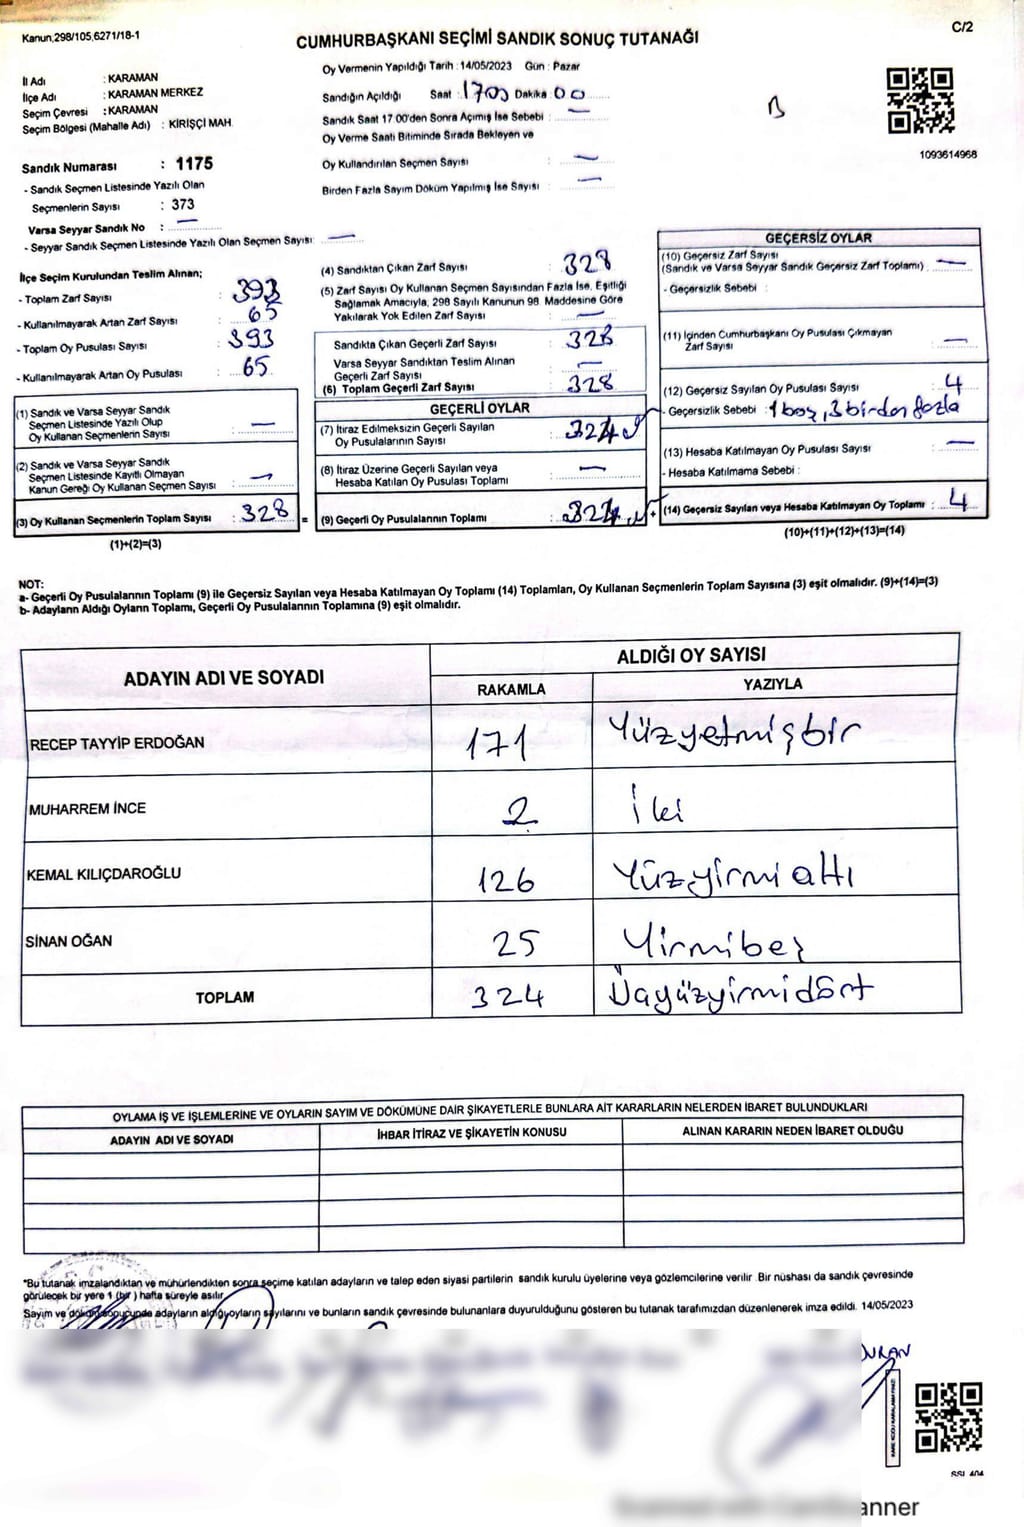 Kanun,298/105,6271/18-1
C/2
CUMHURBAŞKANI SEÇİMİ SANDIK SONUÇ TUTANAĞI
İl Adı : KARAMAN
İlçe Adı : KARAMAN MERKEZ
Seçim Çevresi : KARAMAN
Seçim Bölgesi (Mahalle Adı) : KİRİŞÇİ MAH.
Oy Vermenin Yapıldığı Tarih : 14/05/2023 Gün : Pazar
Sandığın Açıldığı Saat : 1700 Dakika 00
Sandık Saat 17 00'den Sonra Açımış İse Sebebi : —
Oy Verme Saati Bitiminde Sırada Bekleyen ve
Oy Kullandırılan Seçmen Sayısı : —
Birden Fazla Sayım Döküm Yapılmış İse Sayısı : —
B
1093614968
Sandık Numarası : 1175
- Sandık Seçmen Listesinde Yazılı Olan
Seçmenlerin Sayısı : 373
Varsa Seyyar Sandık No : —
- Seyyar Sandık Seçmen Listesinde Yazılı Olan Seçmen Sayısı: —
İlçe Seçim Kurulundan Teslim Alınan;
- Toplam Zarf Sayısı : 393
- Kullanılmayarak Artan Zarf Sayısı : 65
- Toplam Oy Pusulası Sayısı : 393
- Kullanılmayarak Artan Oy Pusulası : 65
(1) Sandık ve Varsa Seyyar Sandık
Seçmen Listesinde Yazılı Olup
Oy Kullanan Seçmenlerin Sayısı : —
(2) Sandık ve Varsa Seyyar Sandık
Seçmen Listesinde Kayıtlı Olmayan
Kanun Gereği Oy Kullanan Seçmen Sayısı : —
(3) Oy Kullanan Seçmenlerin Toplam Sayısı : 328 =
(1)+(2)=(3)
(4) Sandıktan Çıkan Zarf Sayısı : 328
(5) Zarf Sayısı Oy Kullanan Seçmen Sayısından Fazla İse, Eşitliği
Sağlamak Amacıyla, 298 Sayılı Kanunun 98. Maddesine Göre
Yakılarak Yok Edilen Zarf Sayısı : —
Sandıkta Çıkan Geçerli Zarf Sayısı : 328
Varsa Seyyar Sandıktan Teslim Alınan
Geçerli Zarf Sayısı : —
(6) Toplam Geçerli Zarf Sayısı : 328
GEÇERLİ OYLAR
(7) İtiraz Edilmeksizin Geçerli Sayılan
Oy Pusulalarının Sayısı : 324
(8) İtiraz Üzerine Geçerli Sayılan veya
Hesaba Katılan Oy Pusulası Toplamı : —
(9) Geçerli Oy Pusulalarının Toplamı : 324 +
GEÇERSİZ OYLAR
(10) Geçersiz Zarf Sayısı
(Sandık ve Varsa Seyyar Sandık Geçersiz Zarf Toplamı) : —
- Geçersizlik Sebebi :
(11) İçinden Cumhurbaşkanı Oy Pusulası Çıkmayan
Zarf Sayısı : —
(12) Geçersiz Sayılan Oy Pusulası Sayısı : 4
- Geçersizlik Sebebi : 1 boş, 3 birden fazla
(13) Hesaba Katılmayan Oy Pusulası Sayısı : —
- Hesaba Katılmama Sebebi :
(14) Geçersiz Sayılan veya Hesaba Katılmayan Oy Toplamı : 4
(10)+(11)+(12)+(13)=(14)
NOT:
a- Geçerli Oy Pusulalarının Toplamı (9) ile Geçersiz Sayılan veya Hesaba Katılmayan Oy Toplamı (14) Toplamları, Oy Kullanan Seçmenlerin Toplam Sayısına (3) eşit olmalıdır. (9)+(14)=(3)
b- Adayların Aldığı Oyların Toplamı, Geçerli Oy Pusulalarının Toplamına (9) eşit olmalıdır.
ADAYIN ADI VE SOYADI
ALDIĞI OY SAYISI
RAKAMLA YAZIYLA
RECEP TAYYİP ERDOĞAN 171 Yüzyetmişbir
MUHARREM İNCE 2 İki
KEMAL KILIÇDAROĞLU 126 Yüzyirmi altı
SİNAN OĞAN 25 Yirmibeş
TOPLAM 324 Üçyüzyirmidört
OYLAMA İŞ VE İŞLEMLERİNE VE OYLARIN SAYIM VE DÖKÜMÜNE DAİR ŞİKAYETLERLE BUNLARA AİT KARARLARIN NELERDEN İBARET BULUNDUKLARI
ADAYIN ADI VE SOYADI İHBAR İTİRAZ VE ŞİKAYETİN KONUSU ALINAN KARARIN NEDEN İBARET OLDUĞU
*Bu tutanak imzalandıktan ve mühürlendikten sonra seçime katılan adayların ve talep eden siyasi partilerin sandık kurulu üyelerine veya gözlemcilerine verilir. Bir nüshası da sandık çevresinde
görülecek bir yere 1 (bir) hafta süreyle asılır.
Sayım ve döküm sonucunda adayların aldığı oyların sayılarını ve bunların sandık çevresinde bulunanlara duyurulduğunu gösteren bu tutanak tarafımızdan düzenlenerek imza edildi. 14/05/2023
URAN
SSI 404
Scanned with CamScanner